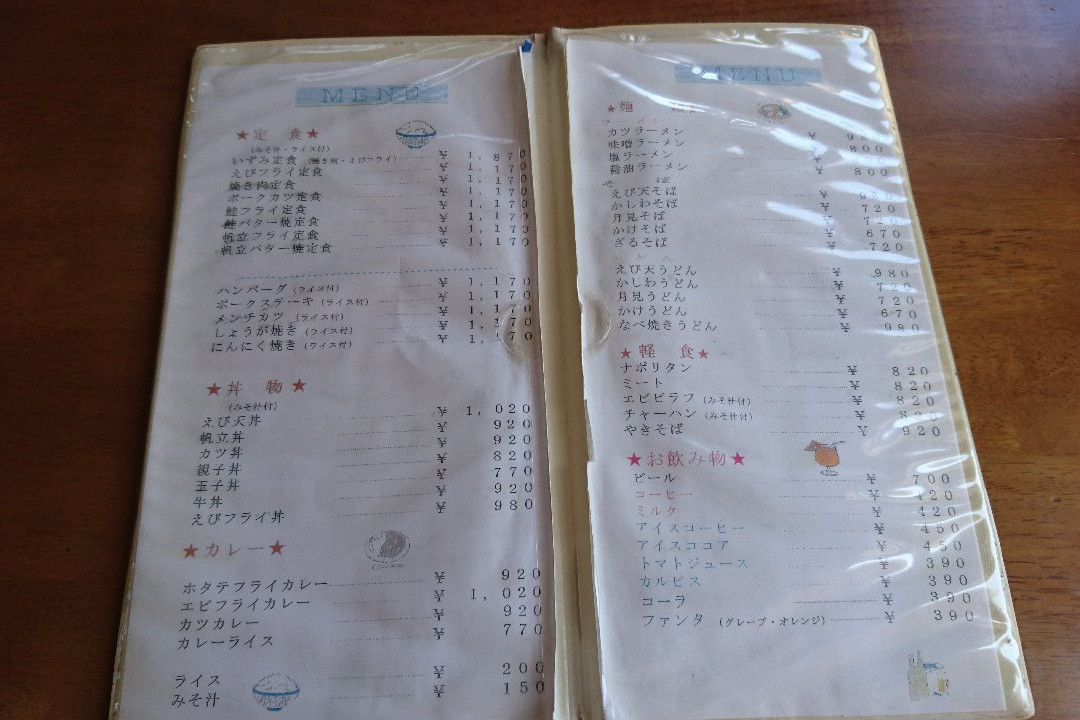 MENU
★定 食★
(みそ汁・ライス付)
いずみ定食 (焼き肉・えびフライ) ¥ 1,870
えびフライ定食 ¥ 1,170
焼き肉定食 ¥ 1,170
ポークカツ定食 ¥ 1,170
鮭フライ定食 ¥ 1,170
鮭バター焼定食 ¥ 1,170
帆立フライ定食 ¥ 1,170
帆立バター焼定食 ¥ 1,170
ハンバーグ (ライス付) ¥ 1,170
ポークステーキ (ライス付) ¥ 1,170
メンチカツ (ライス付) ¥ 1,170
しょうが焼き (ライス付) ¥ 1,170
にんにく焼き (ライス付) ¥ 1,170
★丼 物★
(みそ汁付)
えび天丼 ¥ 1,020
帆立丼 ¥ 920
カツ丼 ¥ 920
親子丼 ¥ 820
玉子丼 ¥ 770
牛丼 ¥ 920
えびフライ丼 ¥ 980
★カレー★
ホタテフライカレー ¥ 920
エビフライカレー ¥ 1,020
カツカレー ¥ 920
カレーライス ¥ 770
ライス ¥ 200
みそ汁 ¥ 150
MENU
★麺
カツラーメン ¥ 980
味噌ラーメン ¥ 800
塩ラーメン ¥
醤油ラーメン ¥ 800
そ ば
えび天そば ¥
かしわそば ¥ 720
月見そば ¥ 720
かけそば ¥ 670
ざるそば ¥ 720
えび天うどん ¥ 980
かしわうどん ¥ 720
月見うどん ¥ 720
かけうどん ¥ 670
なべ焼きうどん ¥ 980
★軽 食★
ナポリタン ¥ 820
ミート ¥ 820
エビピラフ (みそ汁付) ¥ 820
チャーハン (みそ汁付) ¥ 820
やきそば ¥ 920
★お飲み物★
ビール ¥ 700
コーヒー ¥ 420
ミルク ¥ 420
アイスコーヒー ¥ 450
アイスココア ¥ 450
トマトジュース ¥ 390
カルピス ¥ 390
コーラ ¥ 390
ファンタ (グレープ・オレンジ) ¥ 390